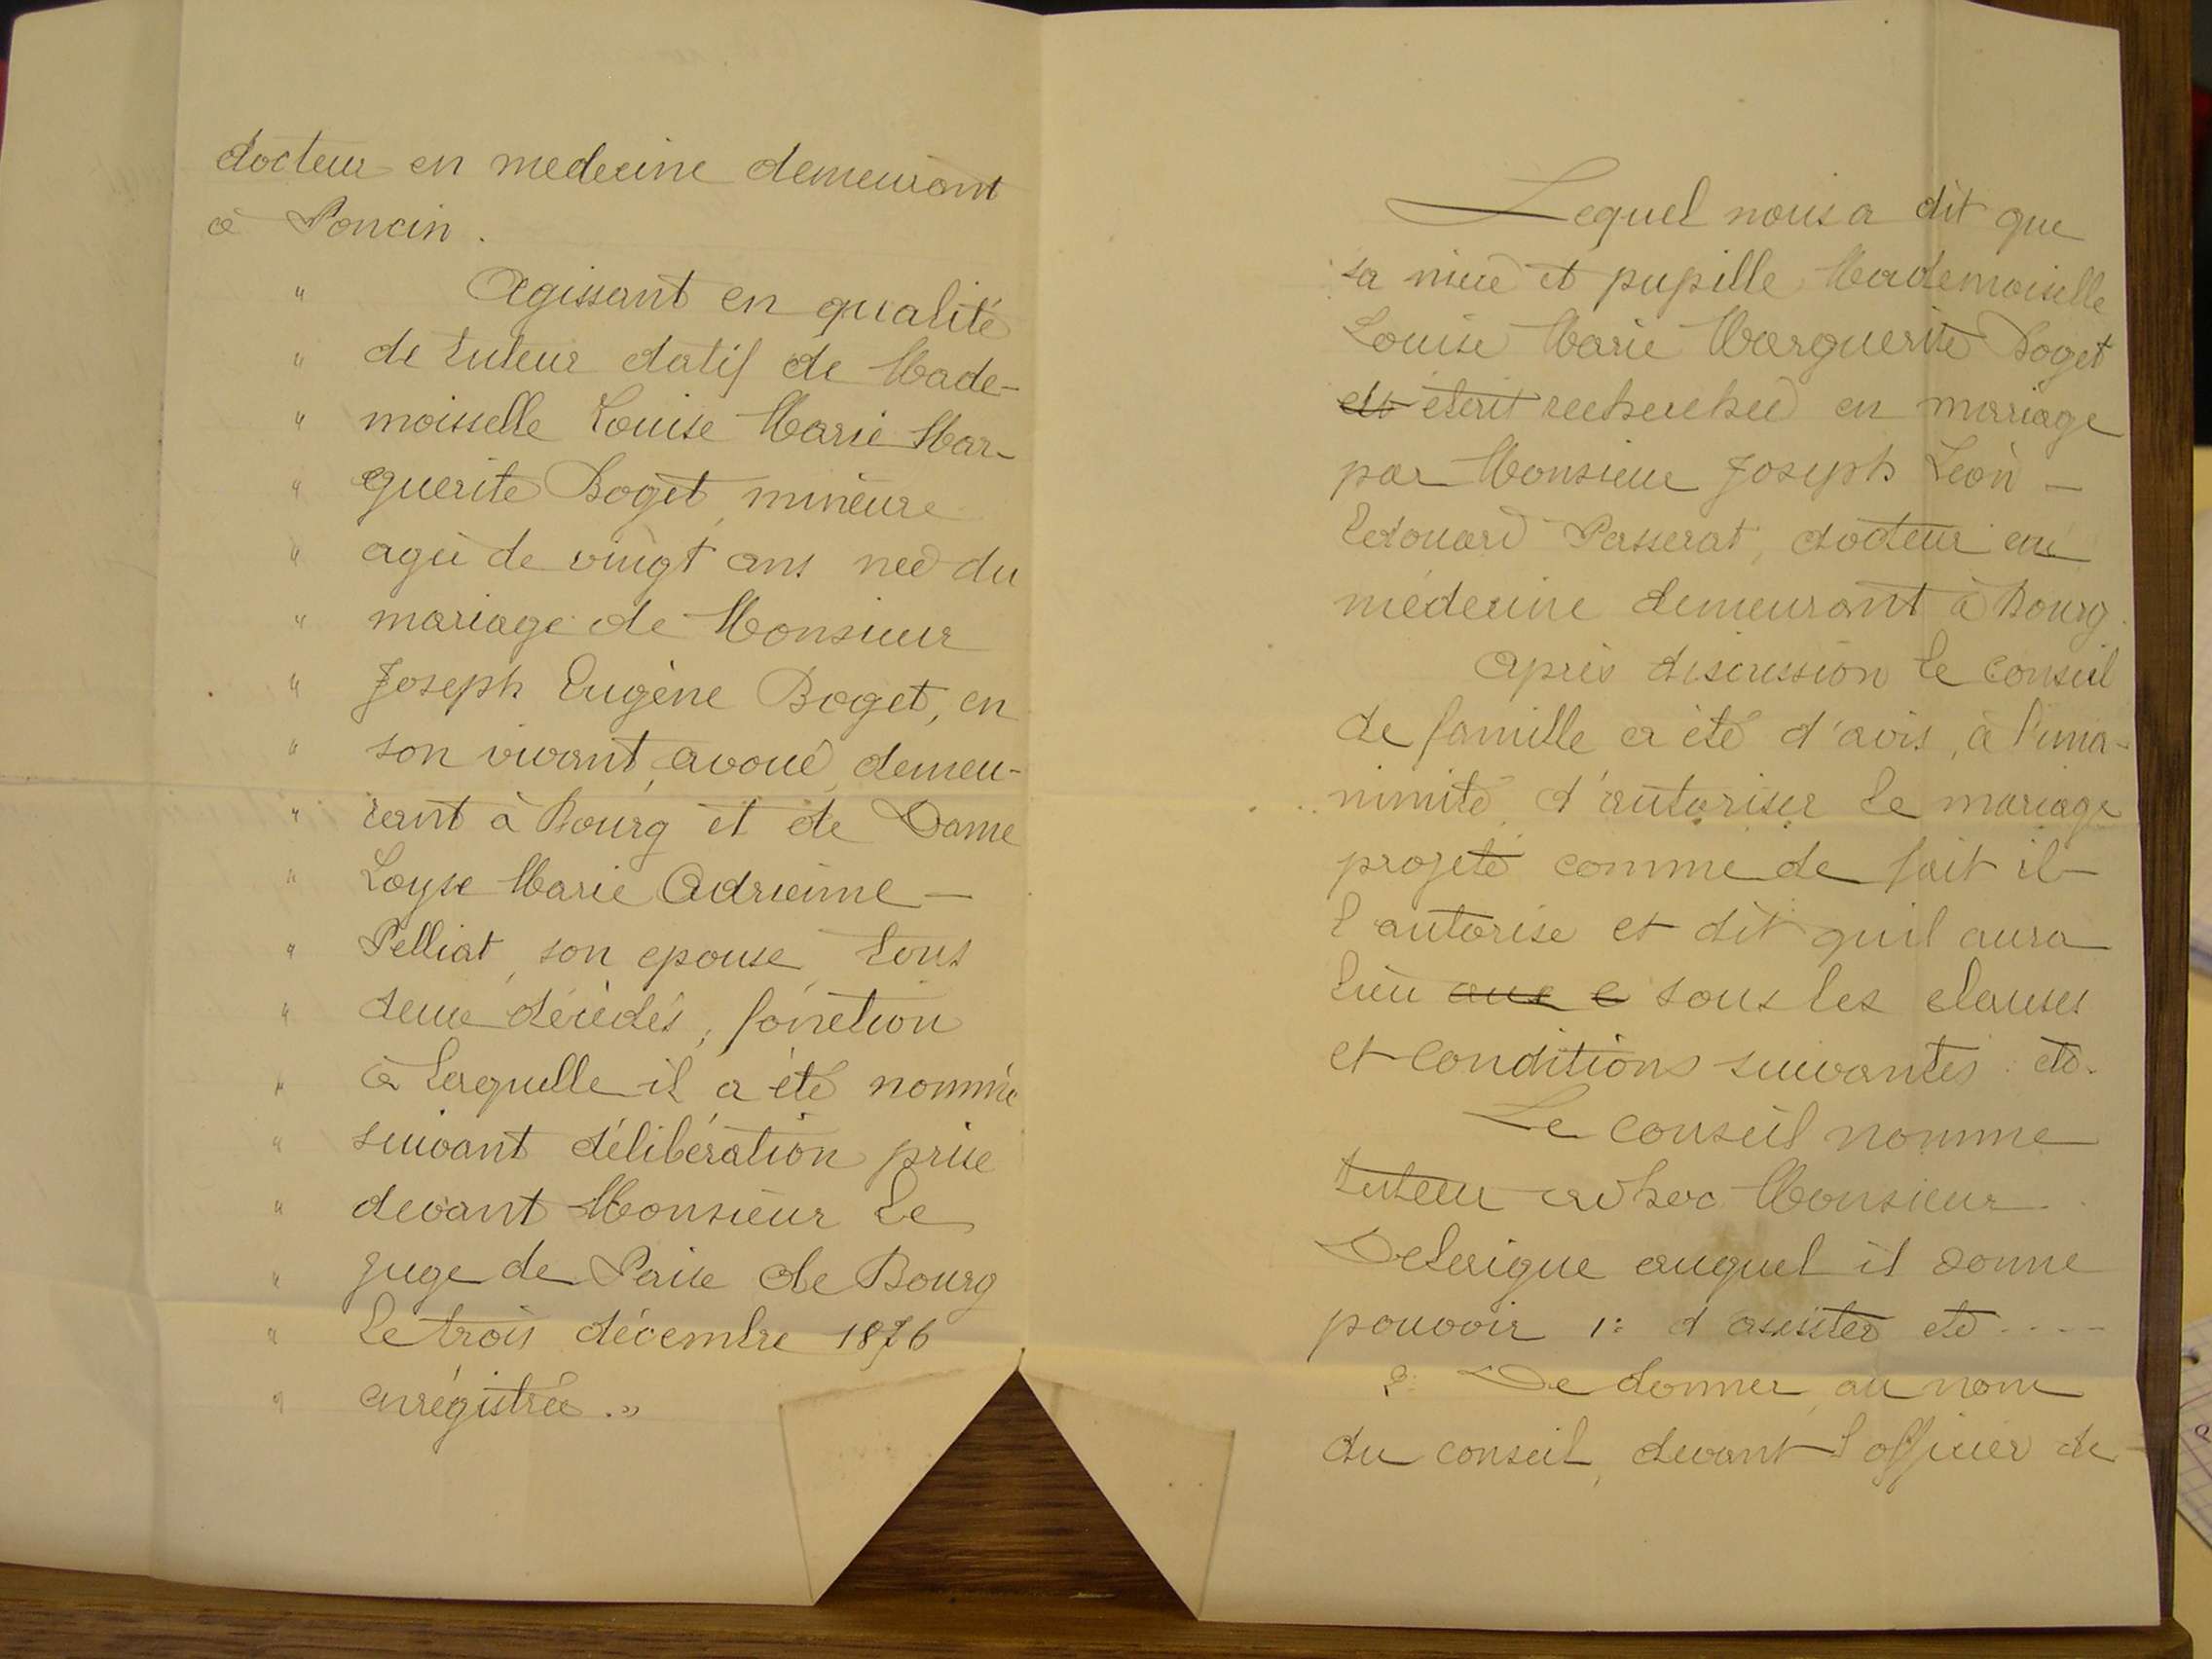 docteur en medecine demeurant
à Poncin.
" Agissant en qualité
" de tuteur datif de Made-
" moisselle Louise Marie Mar-
" guerite Boget, mineure
" agée de vingt ans née du
" mariage de Monsieur
" Joseph Eugène Boget, en
" son vivant, avoué, demeu-
" rant à Bourg et de Dame
" Loyse Marie Adrienne -
" Pelliat, son epouse, tous
" deux décédés, fonction
" à laquelle il a été nommé
" suivant délibération prise
" devant Monsieur Le
" juge de Paix de Bourg
" Le trois décembre 1876
" enrégistrée. "
Lequel nous a dit que
sa nièce et pupille Mademoiselle
Louise Marie Marguerite Boget
était recherchée en mariage
par Monsieur Joseph Léon -
Edouard Passerat, docteur en
médecine demeurant à Bourg.
Après discussion le conseil
de famille a été d'avis, à l'una-
nimité, d'autoriser le mariage
projeté comme de fait il
l'autorise et dit qu'il aura
lieu sous les clauses
et conditions suivantes : etc.
Le conseil nomme
tuteur ad hoc Monsieur
auquel il donne
pouvoir 1: d'assister etc ....
2: De donner, au nom
du conseil, devant l'officier de